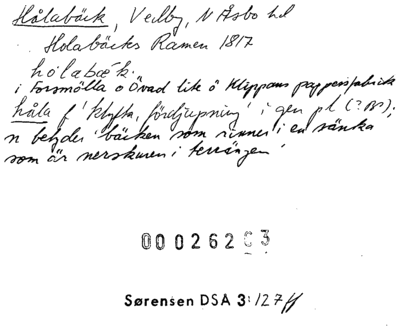 Hålabäck, Vedby, N Åsbo hd
Holabäcks Ramen 1817
hólabæk.
i Forsmölla o Övad lite ö Klippans pappersfabrick
håla f 'klyfta, fördjupning' i gen pl (?BP);
n betyder 'bäcken som rinner i en sänka
som är nerskuren i terrängen'
00026203
Sørensen DSA 3:127ff